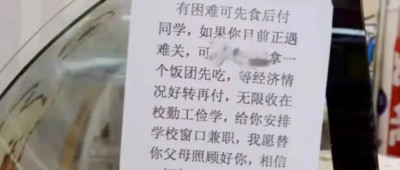 有困难可先食后付
同学，如果你目前正遇
难关，可 拿一
个饭团先吃，等经济情
况好转再付，无限收在
校勤工俭学，给你安排
学校窗口兼职，我愿替
你父母照顾好你，相信